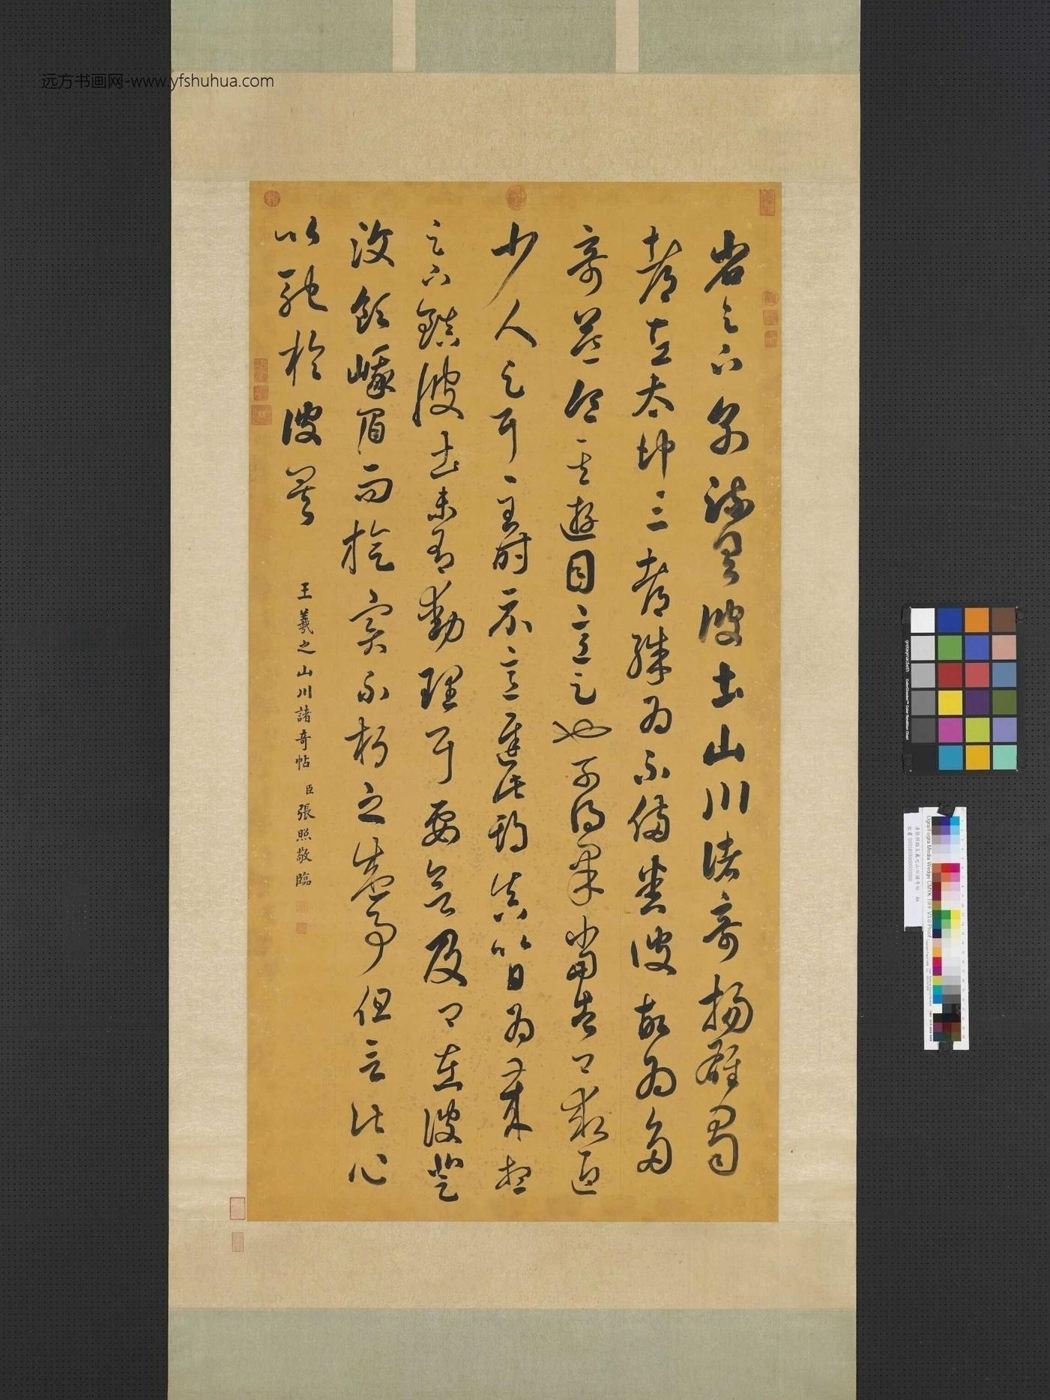 远方书画网-www.yfshuhua.com
省足下別疏具彼土山川諸奇揚雄蜀
都左太沖三都殊為不備悉彼故為多
奇益令其遊目意足也可得果當告卿求迎
少人足耳至時示意遲此期真以日為歲想
足下鎮彼土未有動理耳要欲及卿在彼登
汶領峨眉而旋實不朽之盛事但言此心
以馳於彼矣
王羲之山川諸奇帖 臣張照敬臨